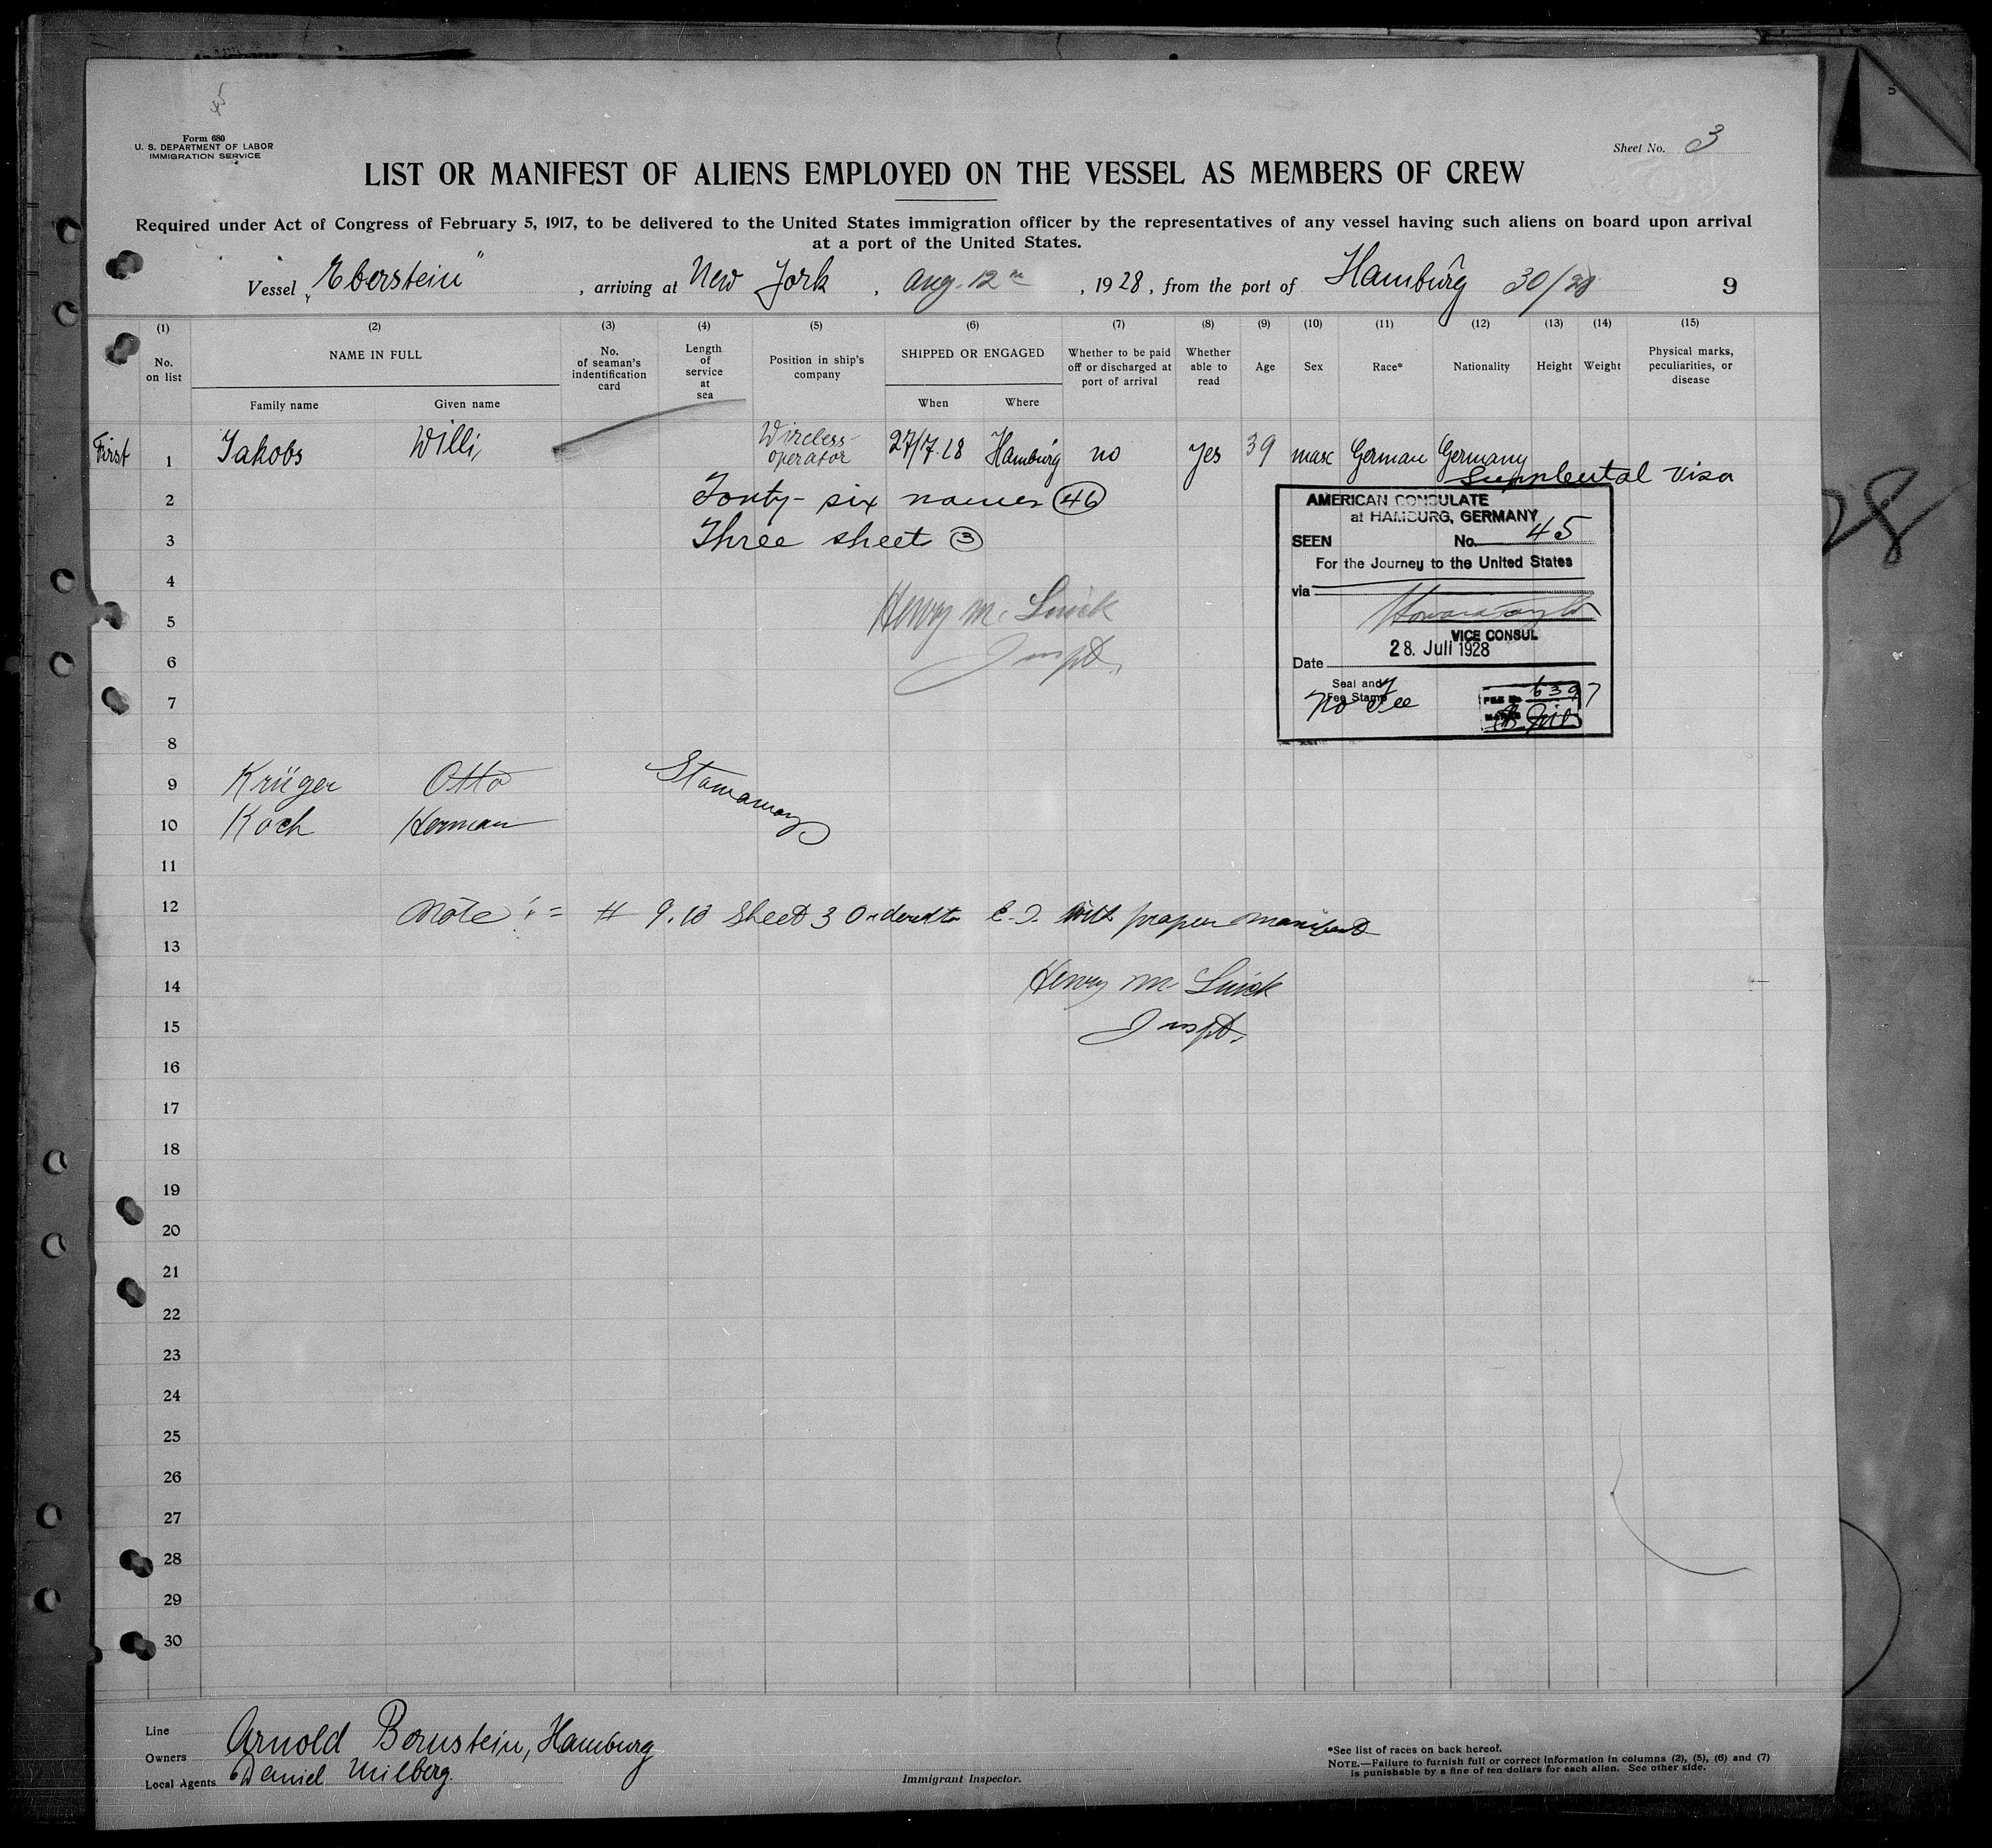 45
Form 680
U. S. DEPARTMENT OF LABOR
IMMIGRATION SERVICE
Sheet No. 3
LIST OR MANIFEST OF ALIENS EMPLOYED ON THE VESSEL AS MEMBERS OF CREW
Required under Act of Congress of February 5, 1917, to be delivered to the United States immigration officer by the representatives of any vessel having such aliens on board upon arrival
at a port of the United States.
Vessel "Eberstein", arriving at New York, Aug. 12th, 1928, from the port of Hamburg 30/28 9
(1) (2) (3) (4) (5) (6) (7) (8) (9) (10) (11) (12) (13) (14) (15)
No. on list
NAME IN FULL
Family name Given name
No. of seaman's indentification card
Length of service at sea
Position in ship's company
SHIPPED OR ENGAGED
When Where
Whether to be paid off or discharged at port of arrival
Whether able to read
Age
Sex
Race*
Nationality
Height
Weight
Physical marks, peculiarities, or disease
First 1 Jakobs Willi, Wireless-operator 27/7.28 Hamburg no Yes 39 male German Germany
Supplental Visa
2 Fonty-six names (46)
3 Three sheets (3)
4
5 Henry M.
6 Inspt.
7
8
AMERICAN CONSULATE
at HAMBURG, GERMANY
SEEN No. 45
For the Journey to the United States
via
VICE CONSUL
Date 28. Juli 1928
Seal and
Fee Stamp
No Fee
FILE No 6397
9 Krüger Otto Stowaway
10 Koch Herman
11
12 Note:= # 9.10 Sheet 3 Ordered to E. I. with proper manifest
13
14 Henry M.
15 Inspt.
16
17
18
19
20
21
22
23
24
25
26
27
28
29
30
28
Line
Owners Arnold Bernstein, Hamburg
Local Agents Daniel Milberg.
Immigrant Inspector.
*See list of races on back hereof.
NOTE.—Failure to furnish full or correct information in columns (2), (5), (6) and (7)
is punishable by a fine of ten dollars for each alien. See other side.